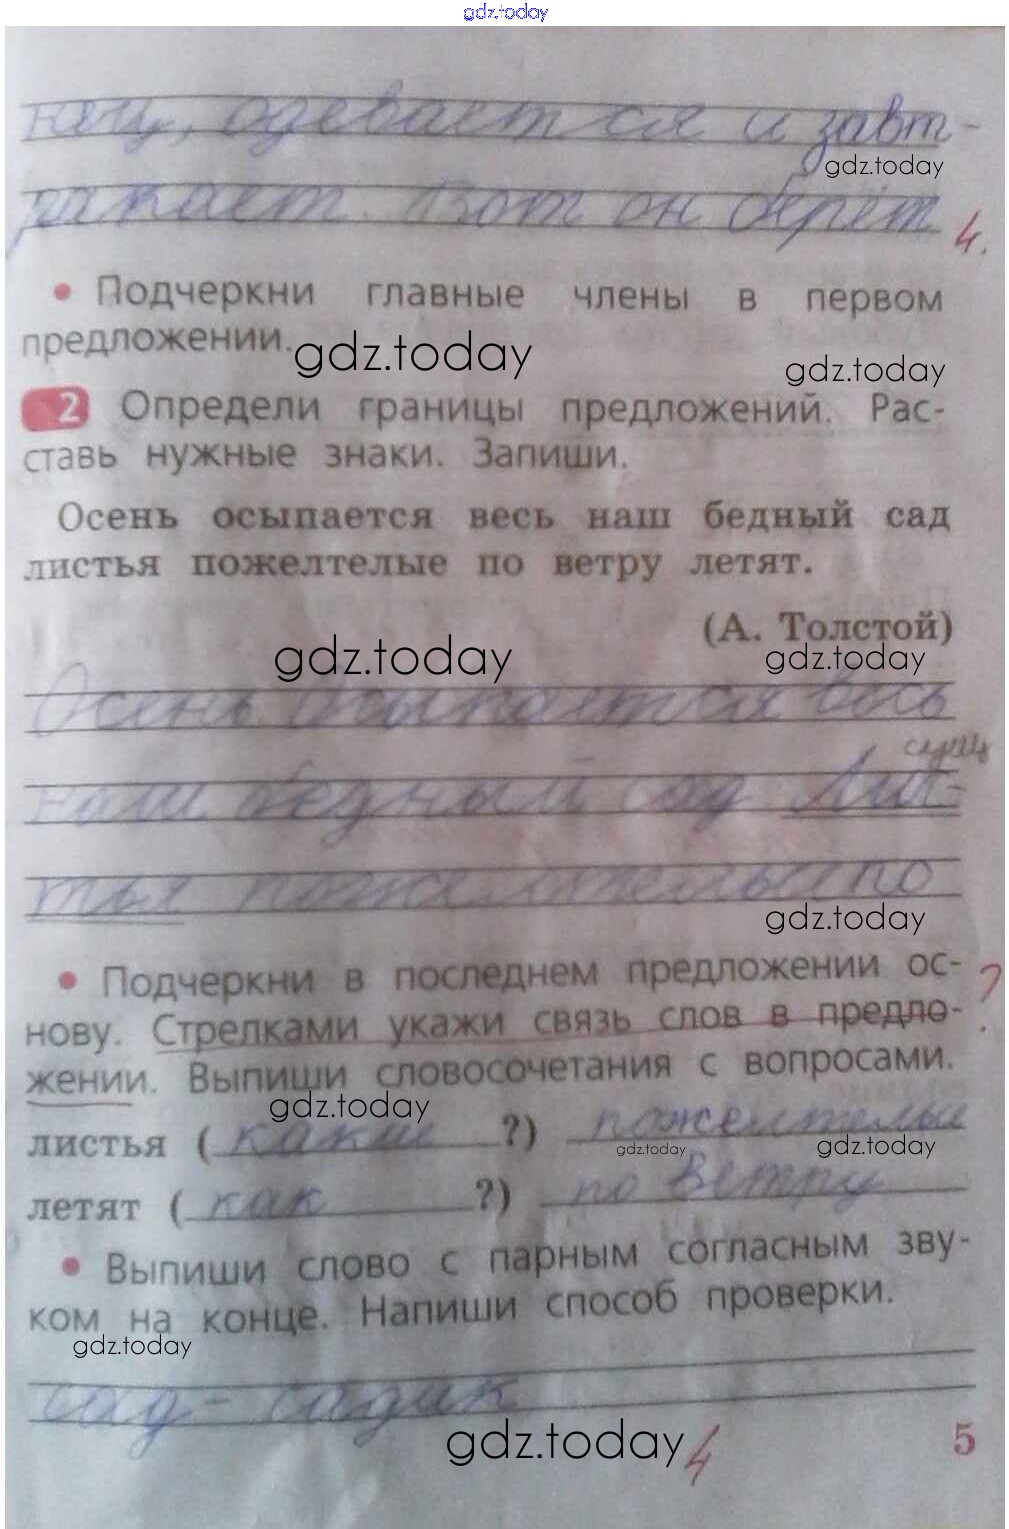 gdz.today
одевается и завт-
gdz.today
ракает. Вот он берёт
4.
• Подчеркни главные члены в первом
предложении.
gdz.today
gdz.today
2 Определи границы предложений. Рас-
ставь нужные знаки. Запиши.
Осень осыпается весь наш бедный сад
листья пожелтелые по ветру летят.
(А. Толстой)
gdz.today
gdz.today
Осень Осыпается весь
сущ
наш бедный сад Лис-
тья пожелтелые по
gdz.today
• Подчеркни в последнем предложении ос- ?
нову. Стрелками укажи связь слов в предло-
жении. Выпиши словосочетания с вопросами.
gdz.today
листья (какие ?) пожелтелые
gdz.today
gdz.today
летят (как ?) по ветру
• Выпиши слово с парным согласным зву-
ком на конце. Напиши способ проверки.
gdz.today
сад - садик
gdz.today
4
5